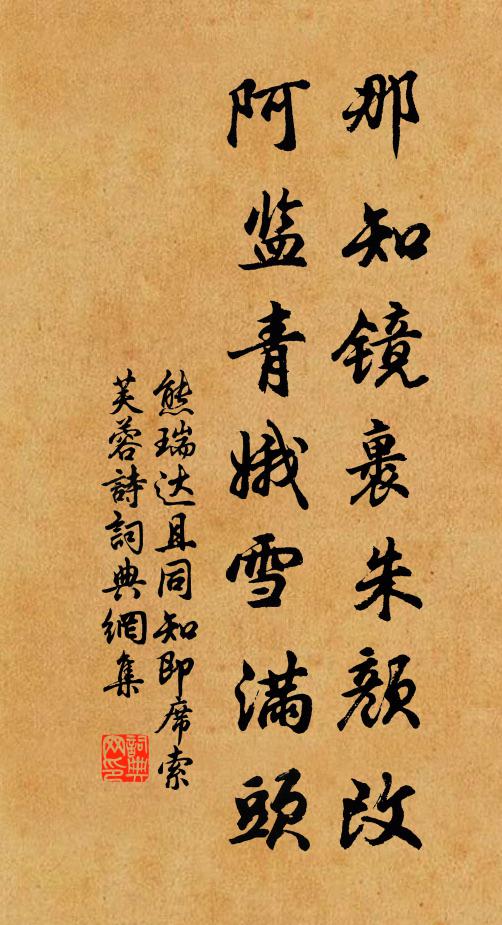 那知镜裹朱顔改
阿监青娥雪满頭
熊瑞达且同知即席索
芙蓉詩詞典網集
詞典
网印